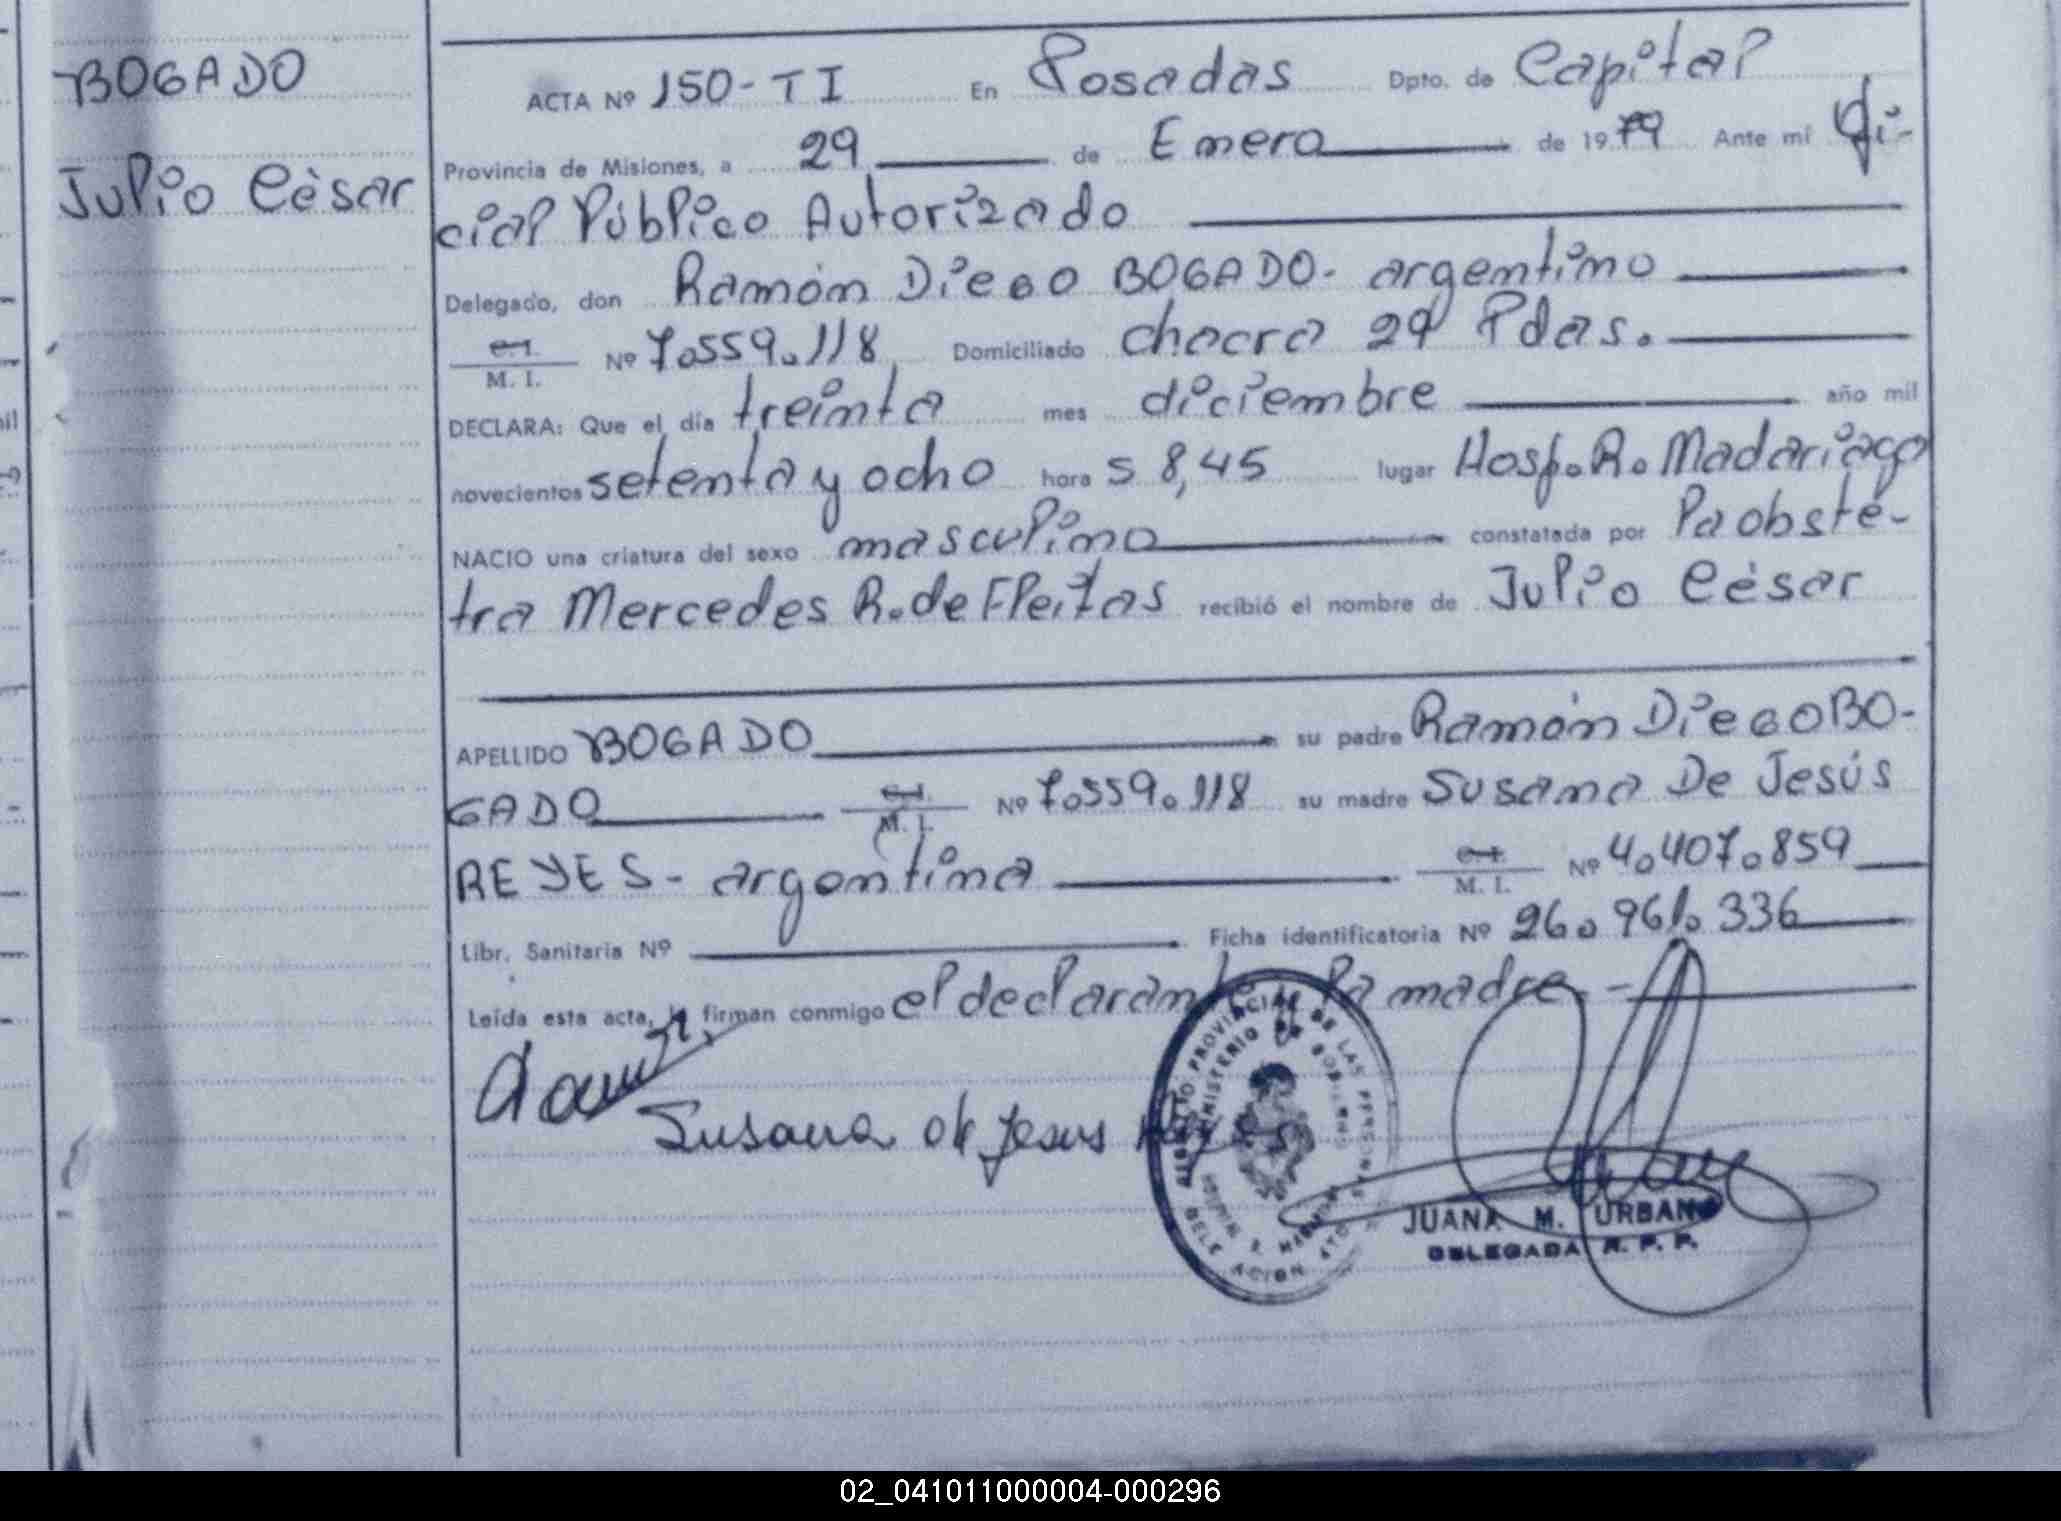 BOGADO
Julio Cèsar
ACTA Nº 150-TI En Posadas Dpto. de Capital
Provincia de Misiones, a 29 de Enero de 1979 Ante mi Ofi-
cial Público Autorizado
Delegado, don Ramón Diego BOGADO- argentino
C.I. M. I. Nº 7.559.118 Domiciliado chacra 29 Pdas.
DECLARA: Que el día treinta mes diciembre año mil
novecientos setenta y ocho hora s 8,45 lugar Hosp. R. Madariaga
NACIO una criatura del sexo masculino constatada por la obsté-
tra Mercedes R. de Fleitas recibió el nombre de Julio Cèsar
APELLIDO BOGADO su padre Ramón Diego BO-
GADO C.I. M. I. Nº 7.559.118 su madre Susana De Jesús
REYES- argentina C.I. M. I. Nº 4.407.859
Libr. Sanitaria Nº Ficha identificatoria Nº 26.961.336
Leída esta acta, la firman conmigo el declarante la madre
Susana de Jesus
REGISTRO PROVINCIAL DE LAS PERSONAS
MINISTERIO DE GOBIERNO
DELEGACION
JUANA M. URBANO
DELEGADA R. P. P.
02_041011000004-000296